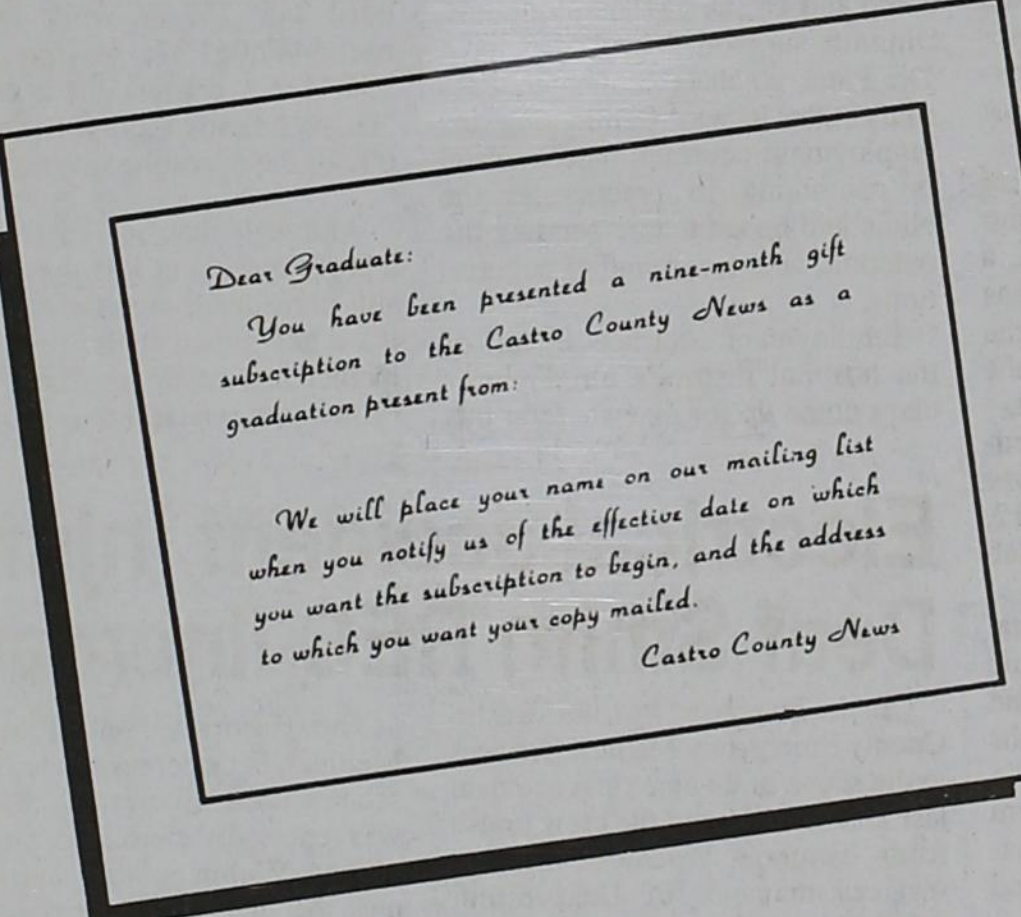 Dear Graduate:
You have been presented a nine-month gift
subscription to the Castro County News as a
graduation present from:
We will place your name on our mailing list
when you notify us of the effective date on which
you want the subscription to begin, and the address
to which you want your copy mailed.
Castro County News